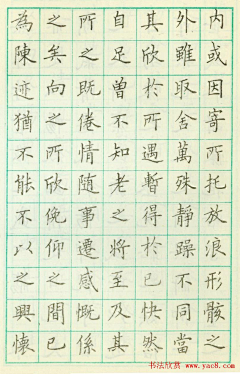 內或因寄所托放浪形骸之
外雖取舍萬殊靜躁不同當
其欣於所遇暫得於己快然
自足曾不知老之將至及其
所之既倦情隨事遷感慨係
之矣向之所欣俛仰之間已
為陳迹猶不能不以之興懷
书法欣赏
www.yac8.com